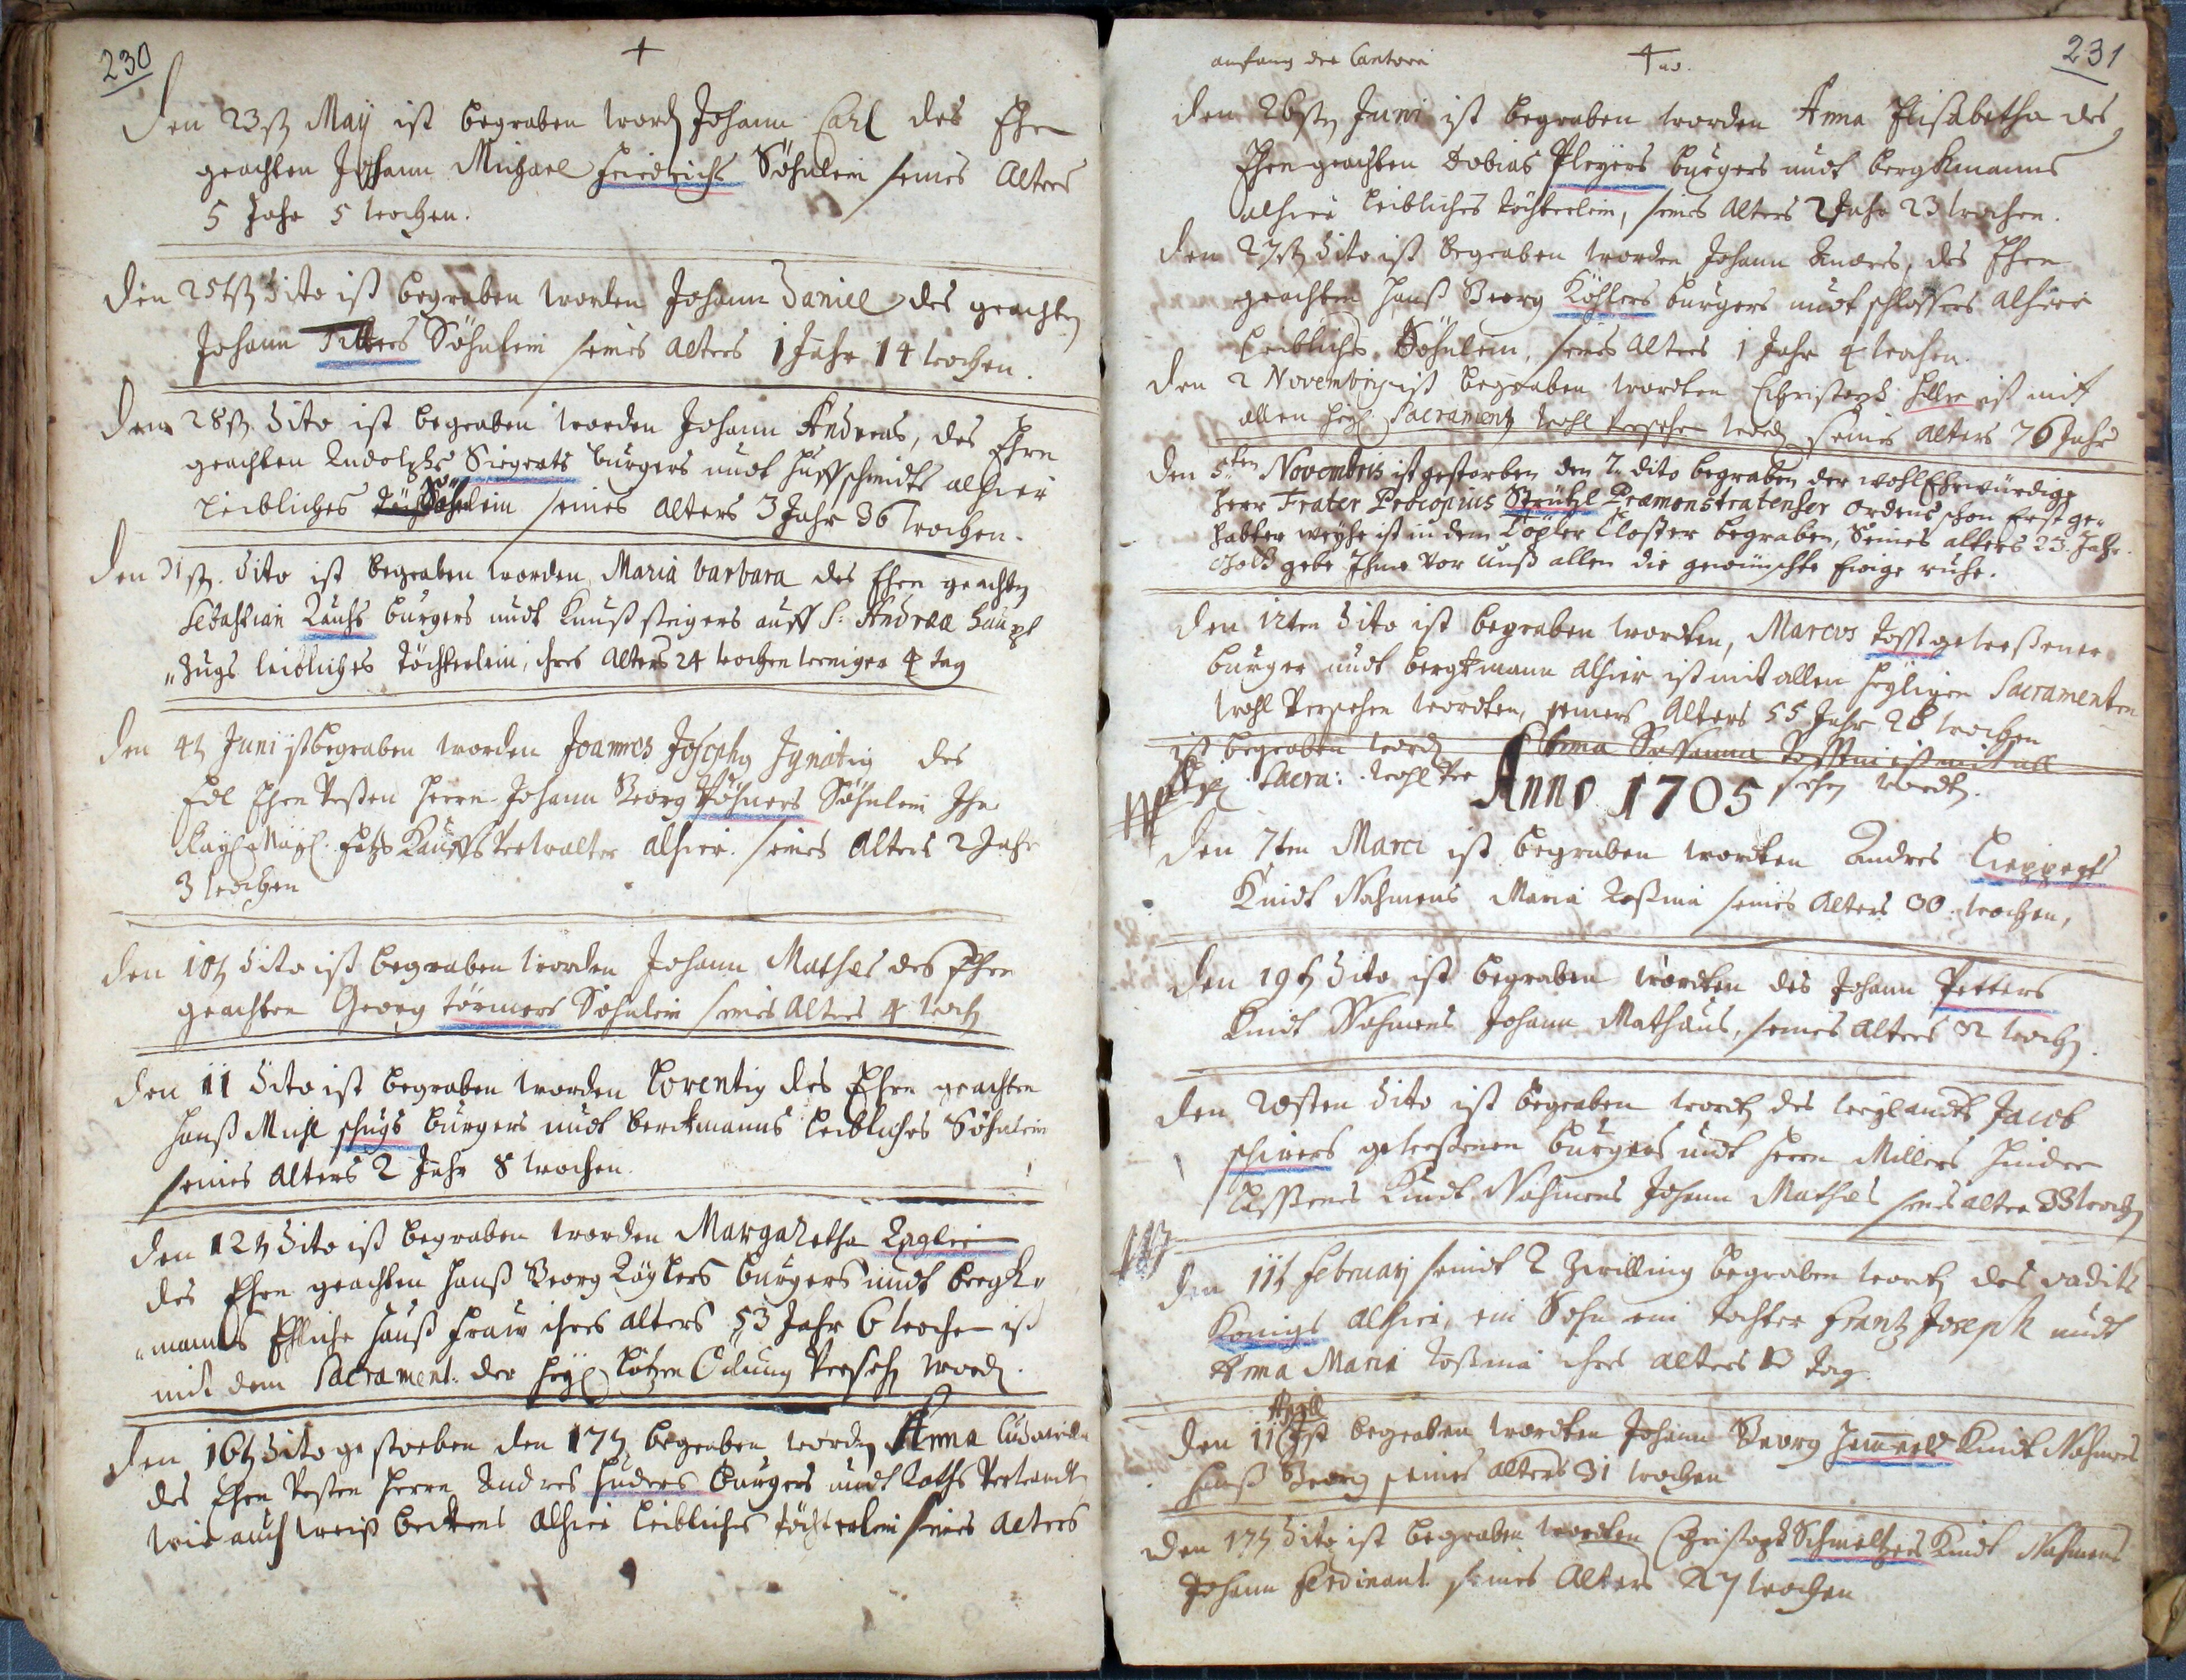 230
Den 23st May ist begraben word Johann Carl des Ehrn
geachten Johann Michael Friedrichs Söhnlein seines Alters
5 Jahr 5 wochen.
Den 25st dito ist begraben worden Johann Daniel des geachten
Johann Söhnlein seines alters 1 Jahr 14 wochen.
Den 28st dito ist begraben worden Johann Andreas, des Ehrn
geachten Rudolphs Siegerts burgers undt Huffschmidts alhier
Leibliches Söhnlein seines alters 3 Jahr 36 wochen.
Den 31st. dito ist begraben worden Maria barbara des Ehrn geachten
Sebastian Rauhs burgers undt Kunststeigers auff S: Andreæ haupt
„Zugs leibliches Töchterlein, ihres Alters 24 wochen weniger 4 tag
Den 4t Juni ist begraben worden Joannes Josephq Ignatiq des
Edl Ehrn Vesten Herrn Johann Georg Söhnlein Ihr
Kayl. Mayl. Verwalter alhier. seines Alters 2 Jahr
3 wochen
Den 10t dito ist begraben worden Johann Mathes des Ehrn
geachten Georg Törmers Söhnlein seines Alters 4 woch
Den 11 dito ist begraben worden Lorentiq des Ehrn geachten
Hanß Michl schugs burgers undt Berckmanns Leibliches Söhnlein
seines alters 2 Jahr 8 wochen.
Den 12t dito ist begraben worden Margaretha
des Ehrn geachten Hanß Georg burgers undt bergk„
„manns Ehliche Hauß Fraw ihres alters 53 Jahr 6 wochen ist
mit dem Sacrament. der Heyl Lötzen Öelung Verseh word.
Den 16t dito gestorben den 17t begraben worden Anna Ludmilla
des Ehrn Vesten Herrn Andres Huders burgers undt Raths Verwandt
wie auch weiß beckens alhier Leibliches Töchterlein seines Alters
anfang der Cantorei
231
Den 26sten Juni ist begraben worden Anna Elisabetha des
Ehrngeachten Tobias Pleyers burgers undt bergkmanns
alhier Leibliches Töchterlein, seines Alters 2 Jahr 23 wochen.
Den 27st dito ist begraben worden Johann Andres, des Ehrn
geachten Hanß Georg Köhlers burgers undt schlossers alhier
Leibliches Söhnlein, seines Alters 1 Jahr 4 wochen.
Den 2 Novembris ist begraben wordten Christoph ist mit
allen heyl Sacramenten wohl Versehen word seines Alters 76 Jahr
Den 5ten Novembris ist gestorben den 7n dito begraben der wohl Ehrwürdige
Herr Frater Procopius Strühl Præmonstratenser ordens schon Erst ge„
habter weyhe ist in dem Töpler Closter begraben, Seines alters 23. Jahr.
Gott gebe Ihme Vor unß allen die gewünschte Ewige ruhe.
Den 12ten dito ist begraben wordten, Marcus geweßener
burger undt bergkmann alhier ist mit allen heyligen Sacramenten
wohl Versehen wordten, seines Alters 55 Jahr 28 wochen
ist begraben word Anna Susanna ist mit all
heyl. Sacra: wohl Ver Anno 1705 sehen wordt.
Den 7ten Marci ist begraben wordten Andres
Kindt Nahmens Maria Roßina seines Alters 30 wochen,
Den 19t dito ist begraben wordten des Johann Petters
Kindt Nahmens Johann Mathäus, seines Alters 32 woch.
Den 20sten dito ist begraben word des weylandt Jacob
schirers geweßenen burgers undt Herrn Millers hinder
Laßenes Kindt Nahmens Johann Mathes seines alter 33 woch
Den 11t February seindt 2 Zwilling begraben word des
Königs alhier, ein Sohn ein tochter Frantz Joseph undt
Anna Maria Roßina ihres alters 13 tag.
Aprill
Den 11 ist begraben wordten Johann Georg Kindt Nahmens
Hanß Georg seines alters 31 wochen
Den 17t dito ist begraben wordten Christoph Schmeltzers Kindt Nahmens
Johann Ferdinant seines Alters 27 wochen